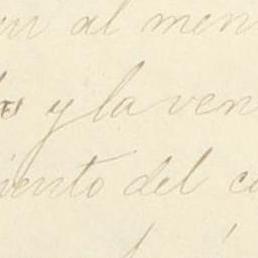 al men
y la ven
iento del c